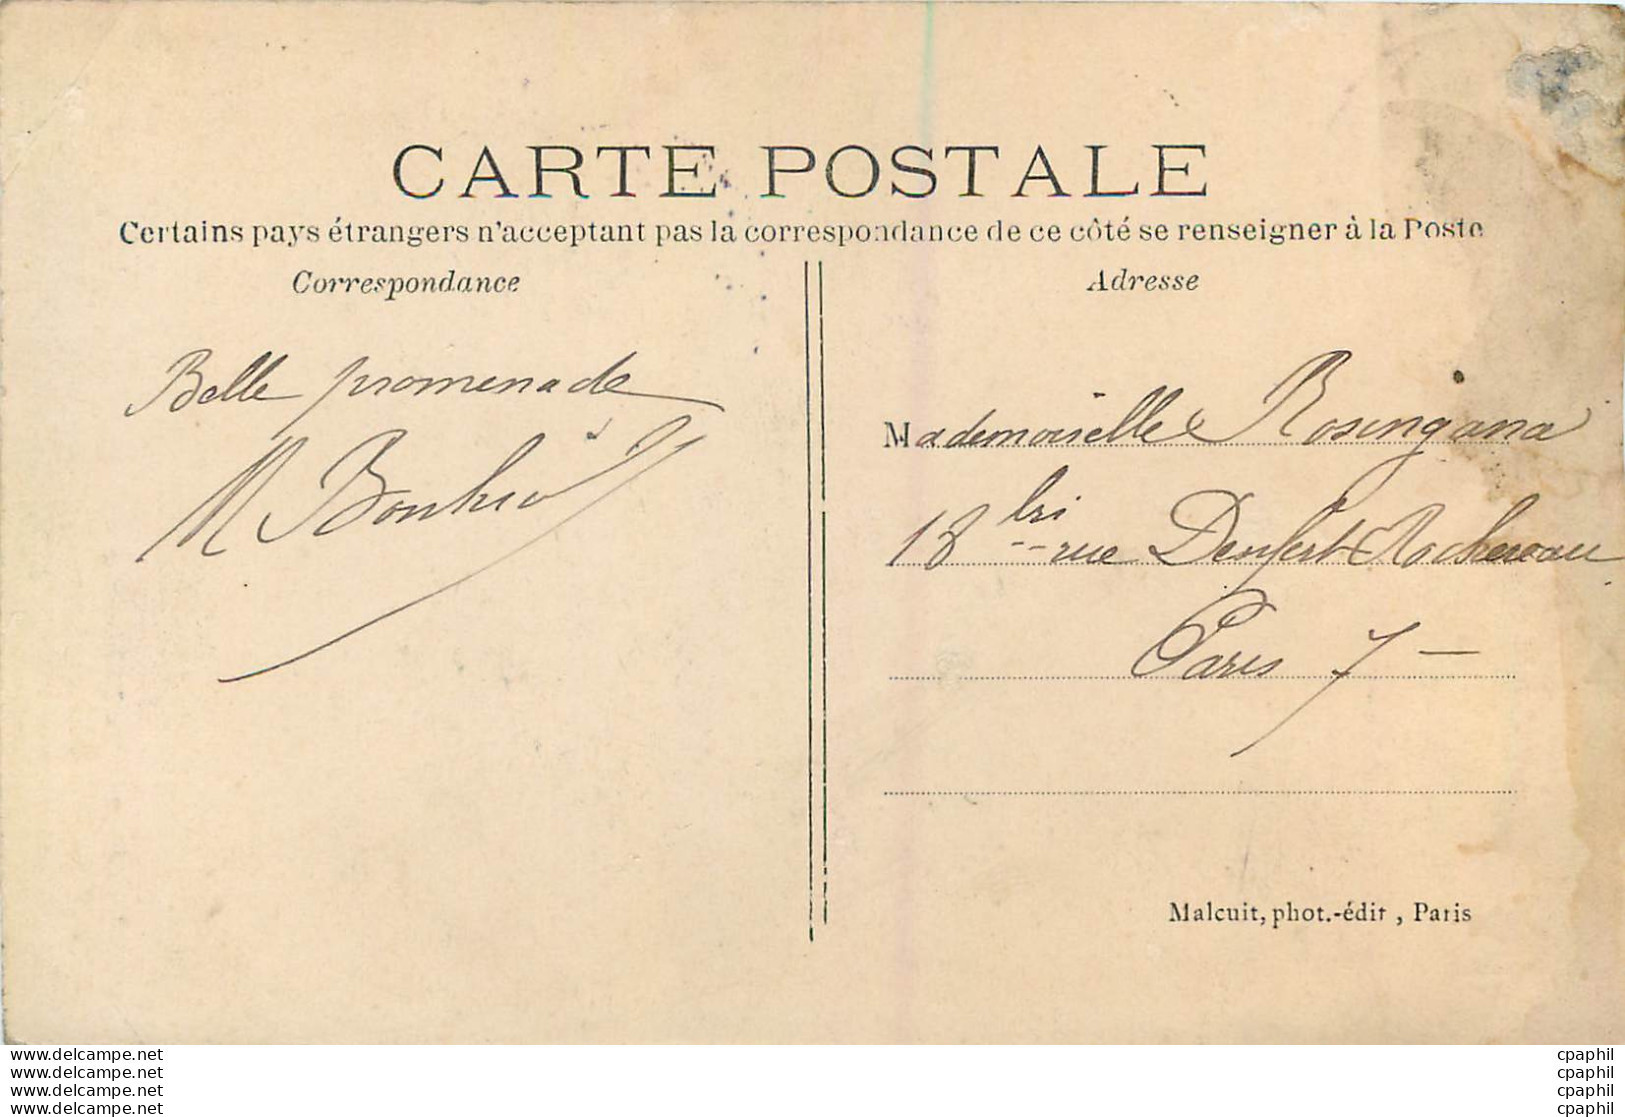 CARTE POSTALE
Certains pays étrangers n'acceptant pas la correspondance de ce côté se renseigner à la Poste
Correspondance
Belle promenade
M
Adresse
Mademoiselle Rosengana
18 bis rue Denfert-Rochereau
Paris 7
Malcuit, phot.-édit, Paris
www.delcampe.net
www.delcampe.net
www.delcampe.net
www.delcampe.net
cpaphil
cpaphil
cpaphil
cpaphil